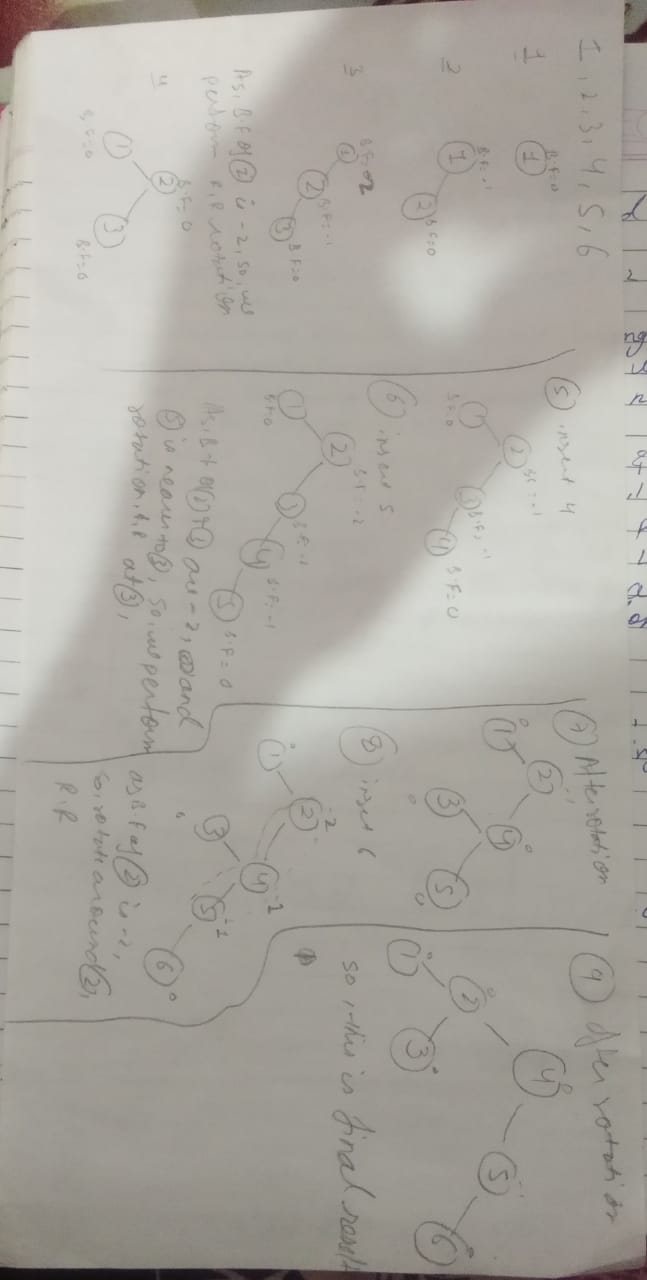 1, 2, 3, 4, 5, 6
1
B.F=0
1
2
B.F=-1
1
2 B.F=0
3
B.F=-2
1
2 B.F=-1
3 B.F=0
As, B.F of 2 is -2, so, we
perform R.R rotation
4
B.F=0
2
1
3
B.F=0
B.F=0
5 insert 4
2 B.F=-1
1
B.F=0
3 B.F=-1
4 B.F=0
6 insert 5
2 B.F=-2
1
B.F=0
3 B.F=-2
4 B.F=-1
5 B.F=0
As, B.F of 2 & are -2, and
is nearer to 3, so, we perform
rotation, R.R at 3,
7 After rotation
2 -1
1 0
4 0
3 0
5 0
8 insert 6
2 -2
1 0
4 -1
3 0
5 -1
6 0
as B.F of 2 is -2,
so rotate around 2,
R.R
9 After rotation
4 0
2 0
5 -1
1 0
3 0
6 0
so, this is final result